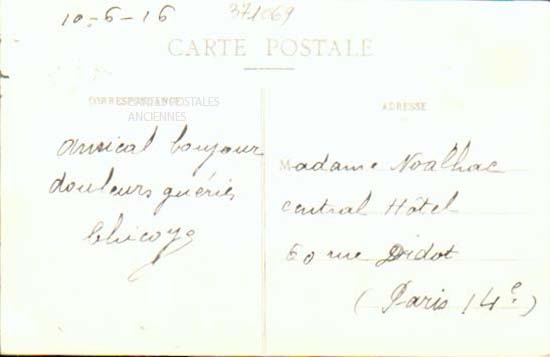 10-6-16
371069
CARTE POSTALE
CORRESPONDANCE
CARTES POSTALES
ANCIENNES
ADRESSE
amical bonjour
douleurs guéries
Madame Noalhac
Central Hôtel
60 rue Didot
(Paris 14e.)